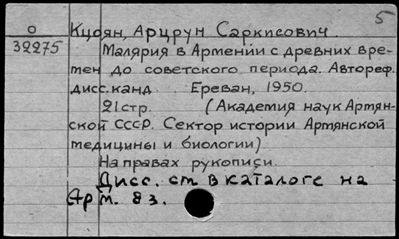 5
О
32275
Кцоян, Арцрун Саркисович.
Малярия в Армении с древних вре-
мен до советского периода. Автореф.
дисс. канд. Ереван, 1950.
21стр. (Академия наук Армян-
ской ССР. Сектор истории Армянской
медицины и биологии)
На правах рукописи.
Дисс. ст в каталоге на
Арм. яз.